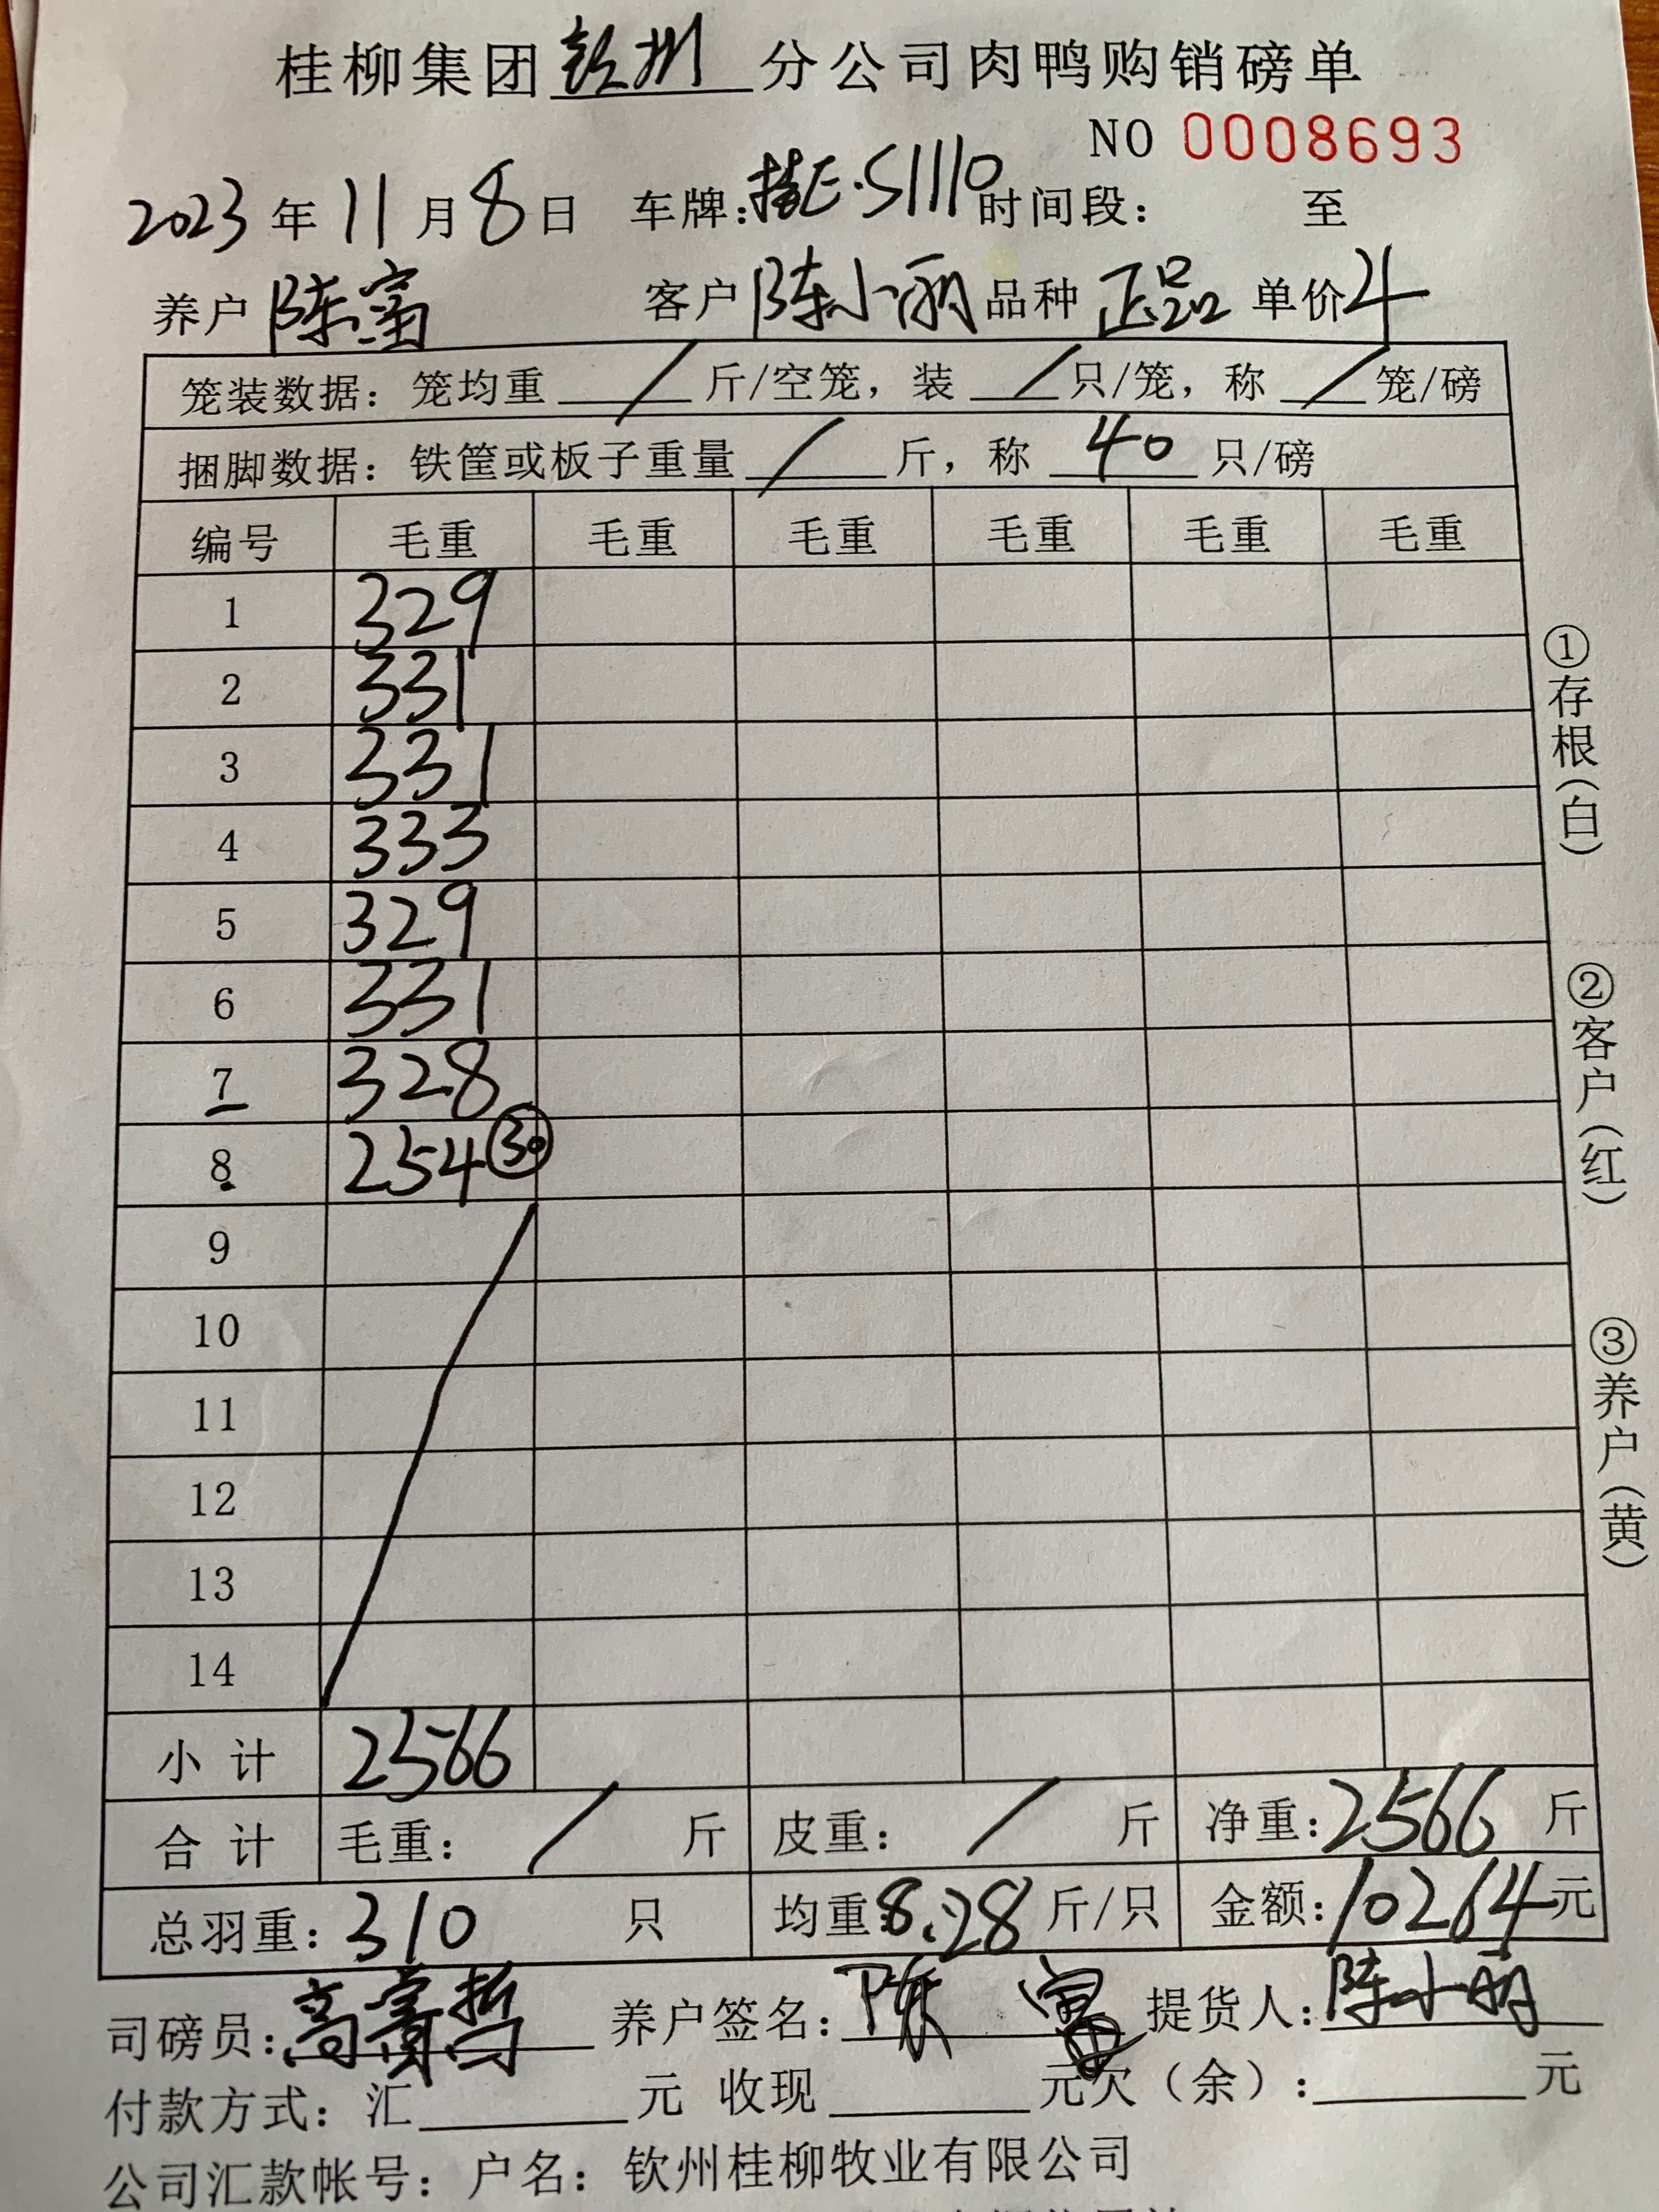 桂柳集团钦州分公司肉鸭购销磅单
NO 0008693
2023年11月8日 车牌:桂E·S1110 时间段: 至
养户 陈富 客户 陈小丽 品种 正品 单价 4
笼装数据:笼均重 / 斤/空笼,装 / 只/笼,称 / 笼/磅
捆脚数据:铁筐或板子重量 / 斤,称 40 只/磅
编号 毛重 毛重 毛重 毛重 毛重 毛重
1 329
2 331
3 331
4 333
5 329
6 331
7 328
8 254 ㉚
9
10
11
12
13
14
小计 2566
合计 毛重: / 斤 皮重: / 斤 净重:2566 斤
总羽重:310 只 均重:8.28 斤/只 金额:10264元
司磅员:高 养户签名:陈富 提货人:陈小丽
付款方式:汇 元 收现 元欠(余): 元
公司汇款帐号:户名:钦州桂柳牧业有限公司
①存根(白)
②客户(红)
③养户(黄)